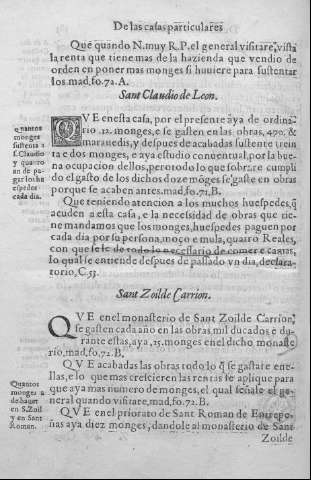 De las casas particulares
Que quando N. muy R. P. el general visitare, vista
la renta que tiene mas de la hazienda que vendio de
orden en poner mas monges si huuiere para sustentar
los. mad. fo. 72. A.
Sant Claudio de Leon.
QVE en esta casa, por el presente aya de ordina-
rio .12. monges, e se gasten en las obras, 470. &
marauedis, y despues de acabadas sustente trein
ta e dos monges, e aya estudio conuentual, por la bue
na ocupacion de llos, pero todo lo que sobrare cumpli
do el gasto de los dichos doze mõges se gaste en obras
porque se acaben antes. mad. fo. 71. B.
Quantos
monges
sustenta s
Claudio
y quanto
an de pa-
gar los hu
espedes
cada dia.
Que teniendo atencion a los muchos huespedes, q̃
acuden a esta casa, e la necessidad de obras que tie-
ne mandamos que los monges, huespedes paguen por
cada dia por su persona, moço e mula, quatro Reales,
con que se le de todo lo necessario de comer e camas,
lo qual se entiende despues de passado vn dia, declara-
torio, C. 53.
Sant Zoil de Carrion.
QVE en el monasterio de Sant Zoil de Carrion,
se gasten cada año en las obras mil ducados e du-
rante estas, aya, 25. monges en el dicho monaste
rio, mad. fo. 72. B.
QVE acabadas las obras todo lo q̃ se gastare en e-
llas, e lo que mas crescieren las rentas se aplique para
que aya mas numero de monges, el qual señale el ge-
neral quando visitare, mad. fo. 72. B.
Quantos
monges a
de hauer
en S. Zoil
y en Sant
Roman.
QVE en el priorato de Sant Roman de Entrepe-
ñas aya diez monges, dandole al monasterio de Sant
Zoilde